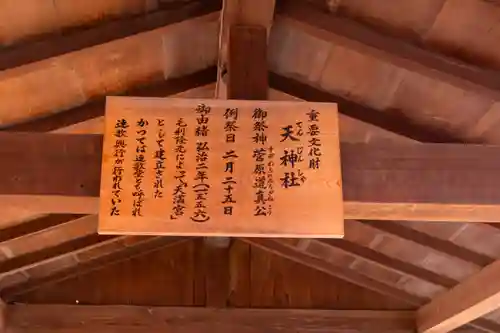 重要文化財
天神社
てんじんしゃ
御祭神 菅原道真公
すがわらみちざねこう
例祭日 二月二十五日
御由緒 弘治二年(一五五六)
毛利隆元によって「天満宮」
として建立された
かつては連歌堂とも呼ばれ
連歌興行が行われていた